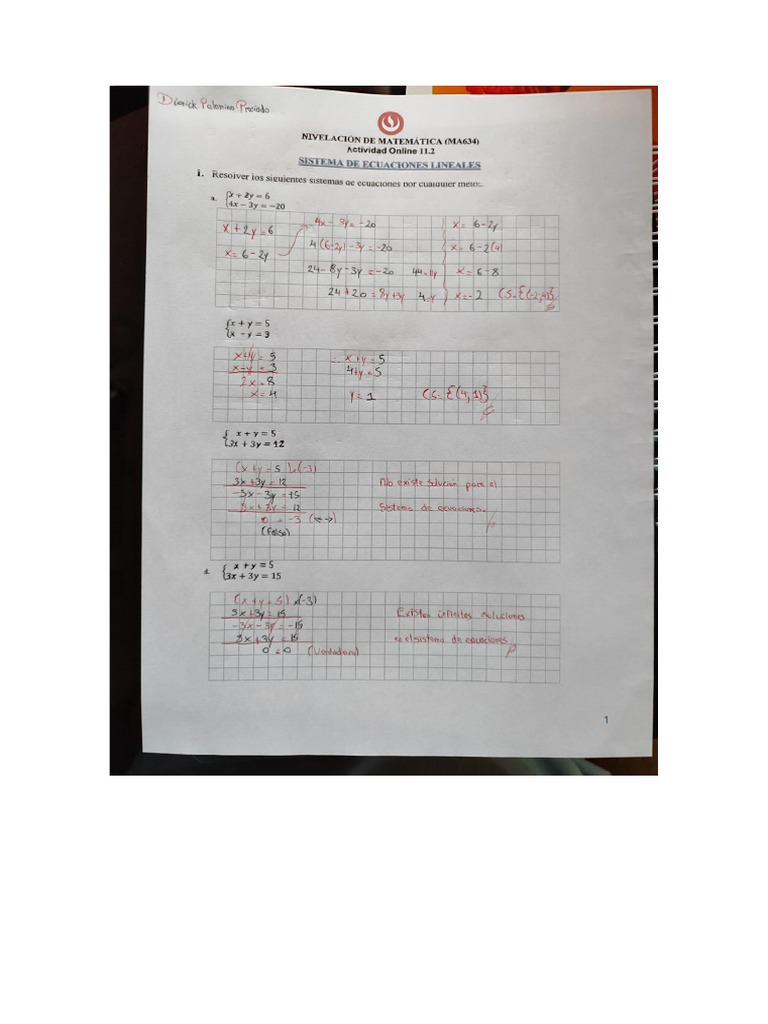 Dierick Palomino Preciado
NIVELACIÓN DE MATEMÁTICA (MA634)
Actividad Online 11.2
SISTEMA DE ECUACIONES LINEALES
1. Resolver los siguientes sistemas de ecuaciones por cualquier
a. {x + 2y = 6
4x − 3y = −20
x + 2y = 6
x = 6 - 2y
4x - 3y = -20
4(6-2y) - 3y = -20
24 - 8y - 3y = -20
24 + 20 = 8y + 3y
44 = 11y
4 = y
x = 6-2y
x = 6-2(4)
x = 6-8
x = -2
CS = {(-2,4)}
{x + y = 5
x − y = 3
x+y = 5
x-y = 3
2x = 8
x = 4
x+y = 5
4+y = 5
y = 1
CS = {(4,1)}
{x + y = 5
3x + 3y = 12
(x+y = 5)x(-3)
3x+3y = 12
-3x-3y = -15
3x+3y = 12
0 = -3
(Falso)
No existe solución para el
Sistema de ecuaciones.
d. {x + y = 5
3x + 3y = 15
(x+y=5)x(-3)
3x+3y = 15
-3x-3y = -15
3x+3y = 15
0 = 0 (Verdadero)
Existen infinitas soluciones
en el sistema de ecuaciones
1